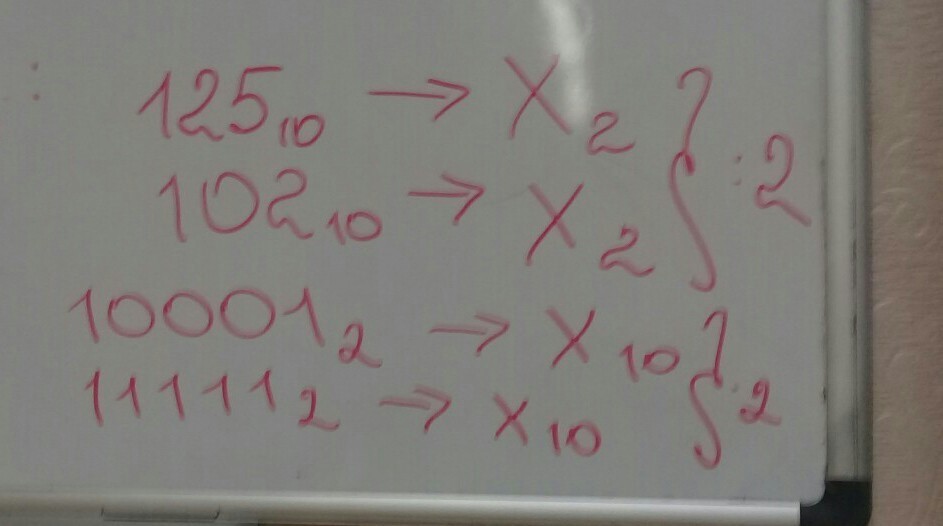 125₁₀ → X₂ } :2
102₁₀ → X₂
10001₂ → X₁₀ } :2
11111₂ → X₁₀